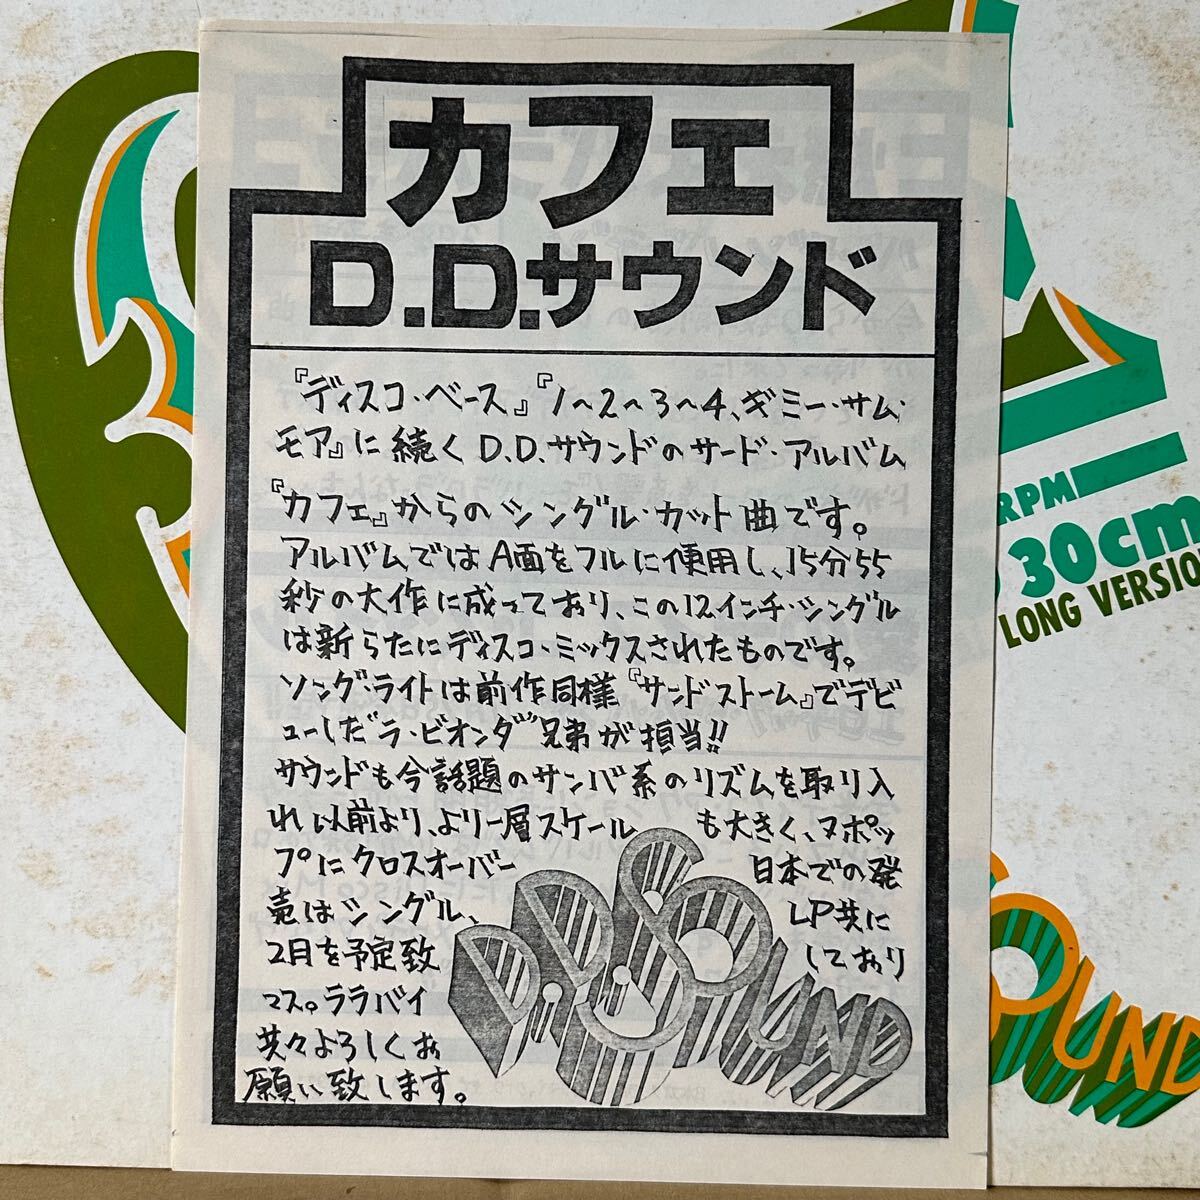 カフェ
D.D.サウンド
『ディスコ・ベース』『1〜2〜3〜4、ギミー・サム・
モア』に続くD.D.サウンドのサード・アルバム
『カフェ』からのシングル・カット曲です。
アルバムではA面をフルに使用し、15分55
秒の大作に成っており、この12インチ・シングル
は新らたにディスコ・ミックスされたものです。
ソング・ライトは前作同様『サンドストーム』でデビ
ューした"ラ・ビオンダ"兄弟が担当!!
サウンドも今話題のサンバ系のリズムを取り入
れ以前より、より一層スケールも大きく、ヌポッ
プにクロスオーバー 日本での発
売はシングル、LP共に
2月を予定致しており
マス。ララバイ
共々よろしくお
願い致します。
D.D.SOUND
RPM
30cm
LONG VERSIO
OUND